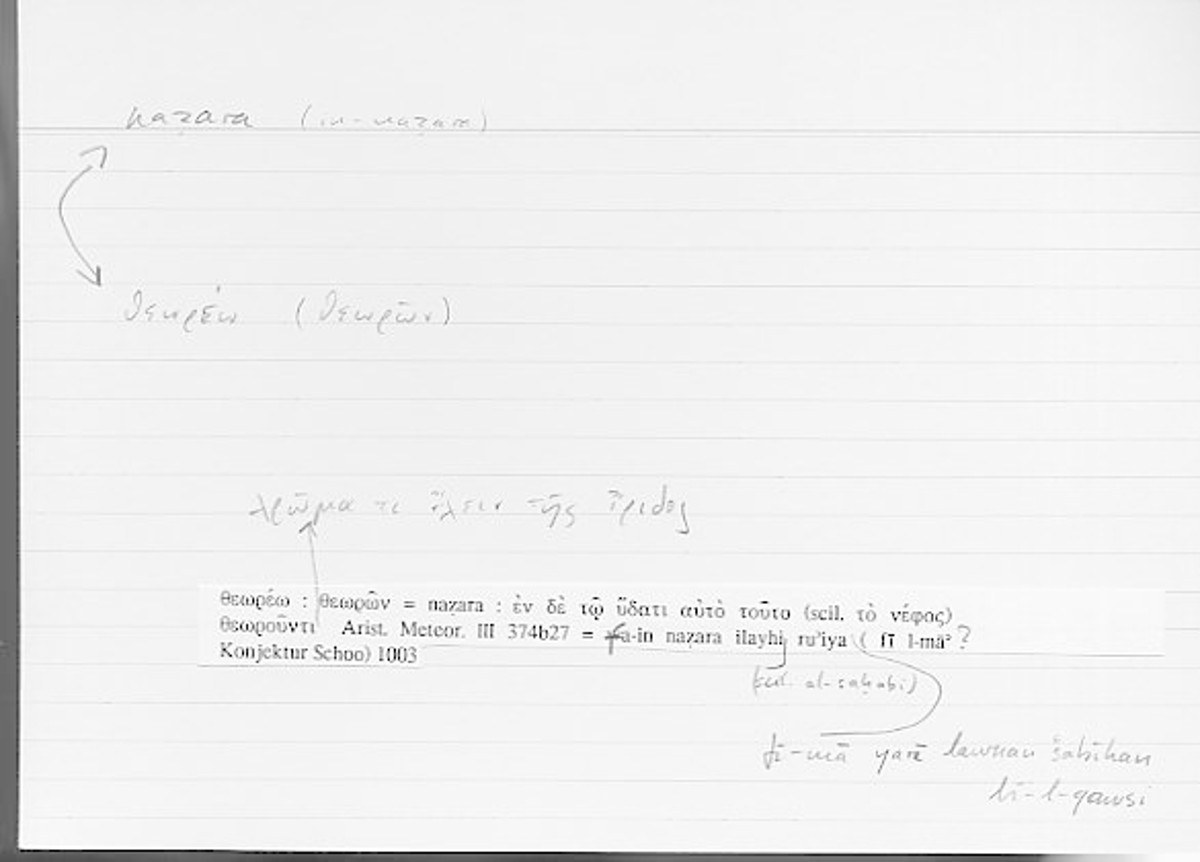 naẓara (in-naẓara)
θεωρέω (θεωρῶν)
χρῶμά τι ἔχειν τῆς ἴριδος
θεωρέω : θεωρῶν = naẓara : ἐν δὲ τῷ ὕδατι αὐτὸ τοῦτο (scil. τὸ νέφος)
θεωροῦντι Arist. Meteor. III 374b27 = fa-in naẓara ilayhi ru'iya ( fī l-mā' ?
Konjektur Schoo) 1003
(scil. al-saḥabi)
fī-mā yarā lawnan šabīhan
bi-l-qawsi